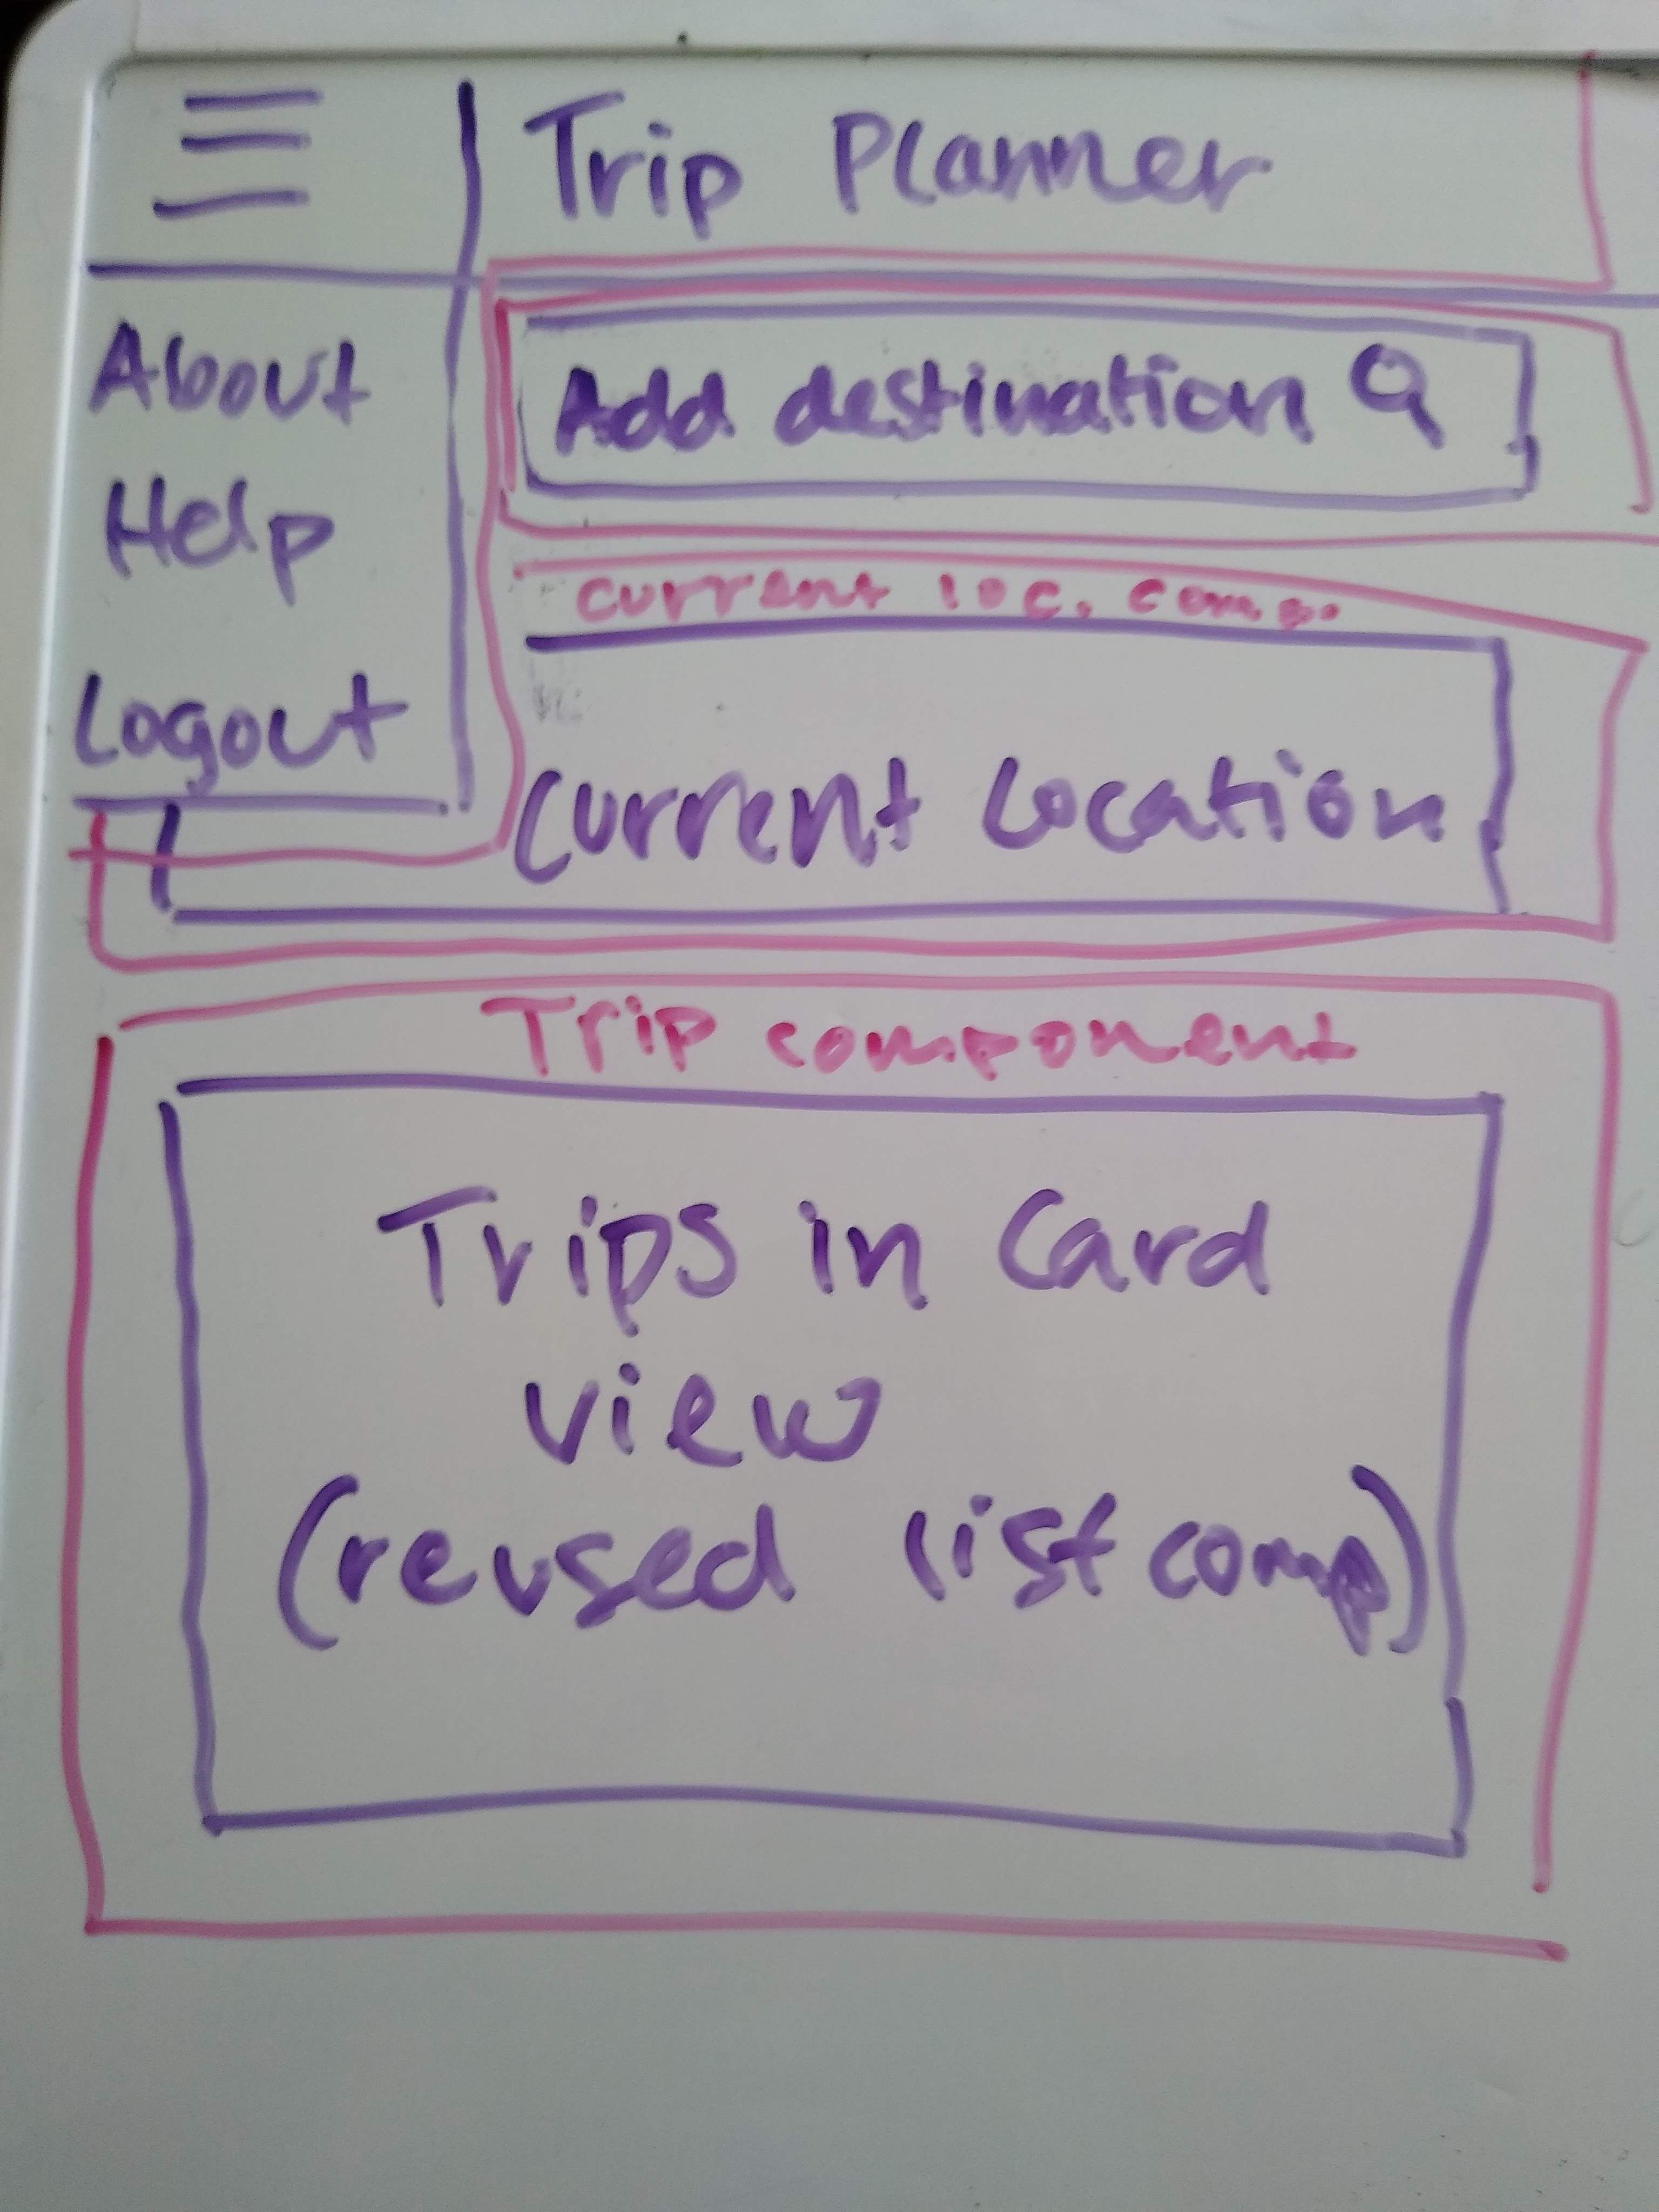 Trip Planner
About
Help
Logout
Add destination
current loc. comp.
Current Location
Trip component
Trips in Card
view
(reused list comp)